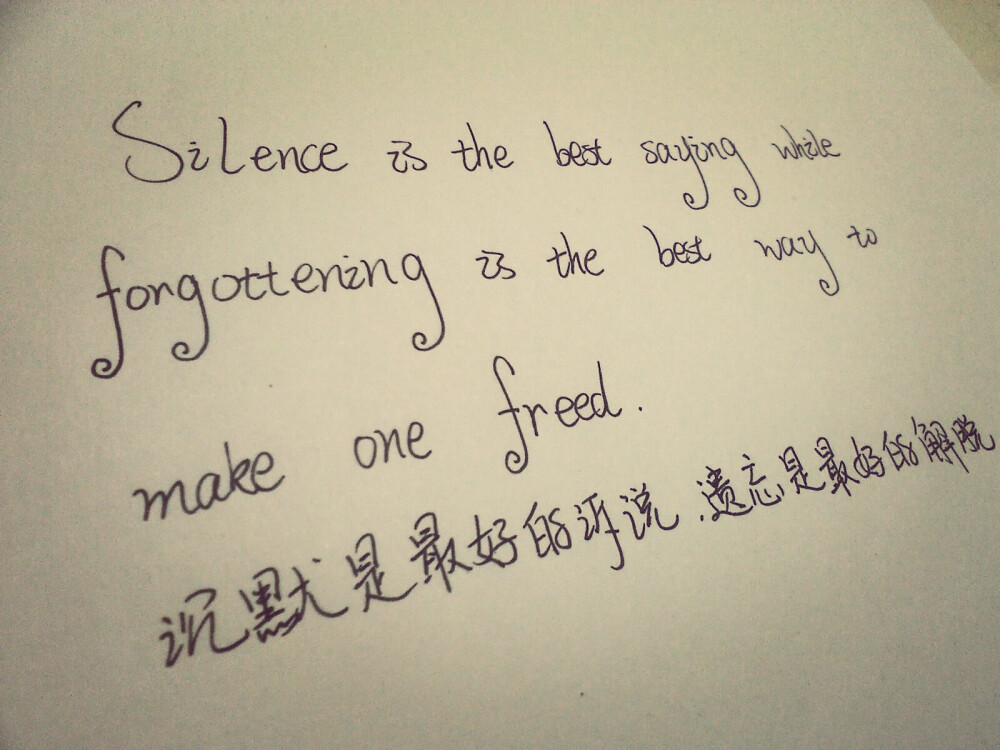 Silence is the best saying while
forgottening is the best way to
make one freed.
沉默是最好的诉说.遗忘是最好的解脱